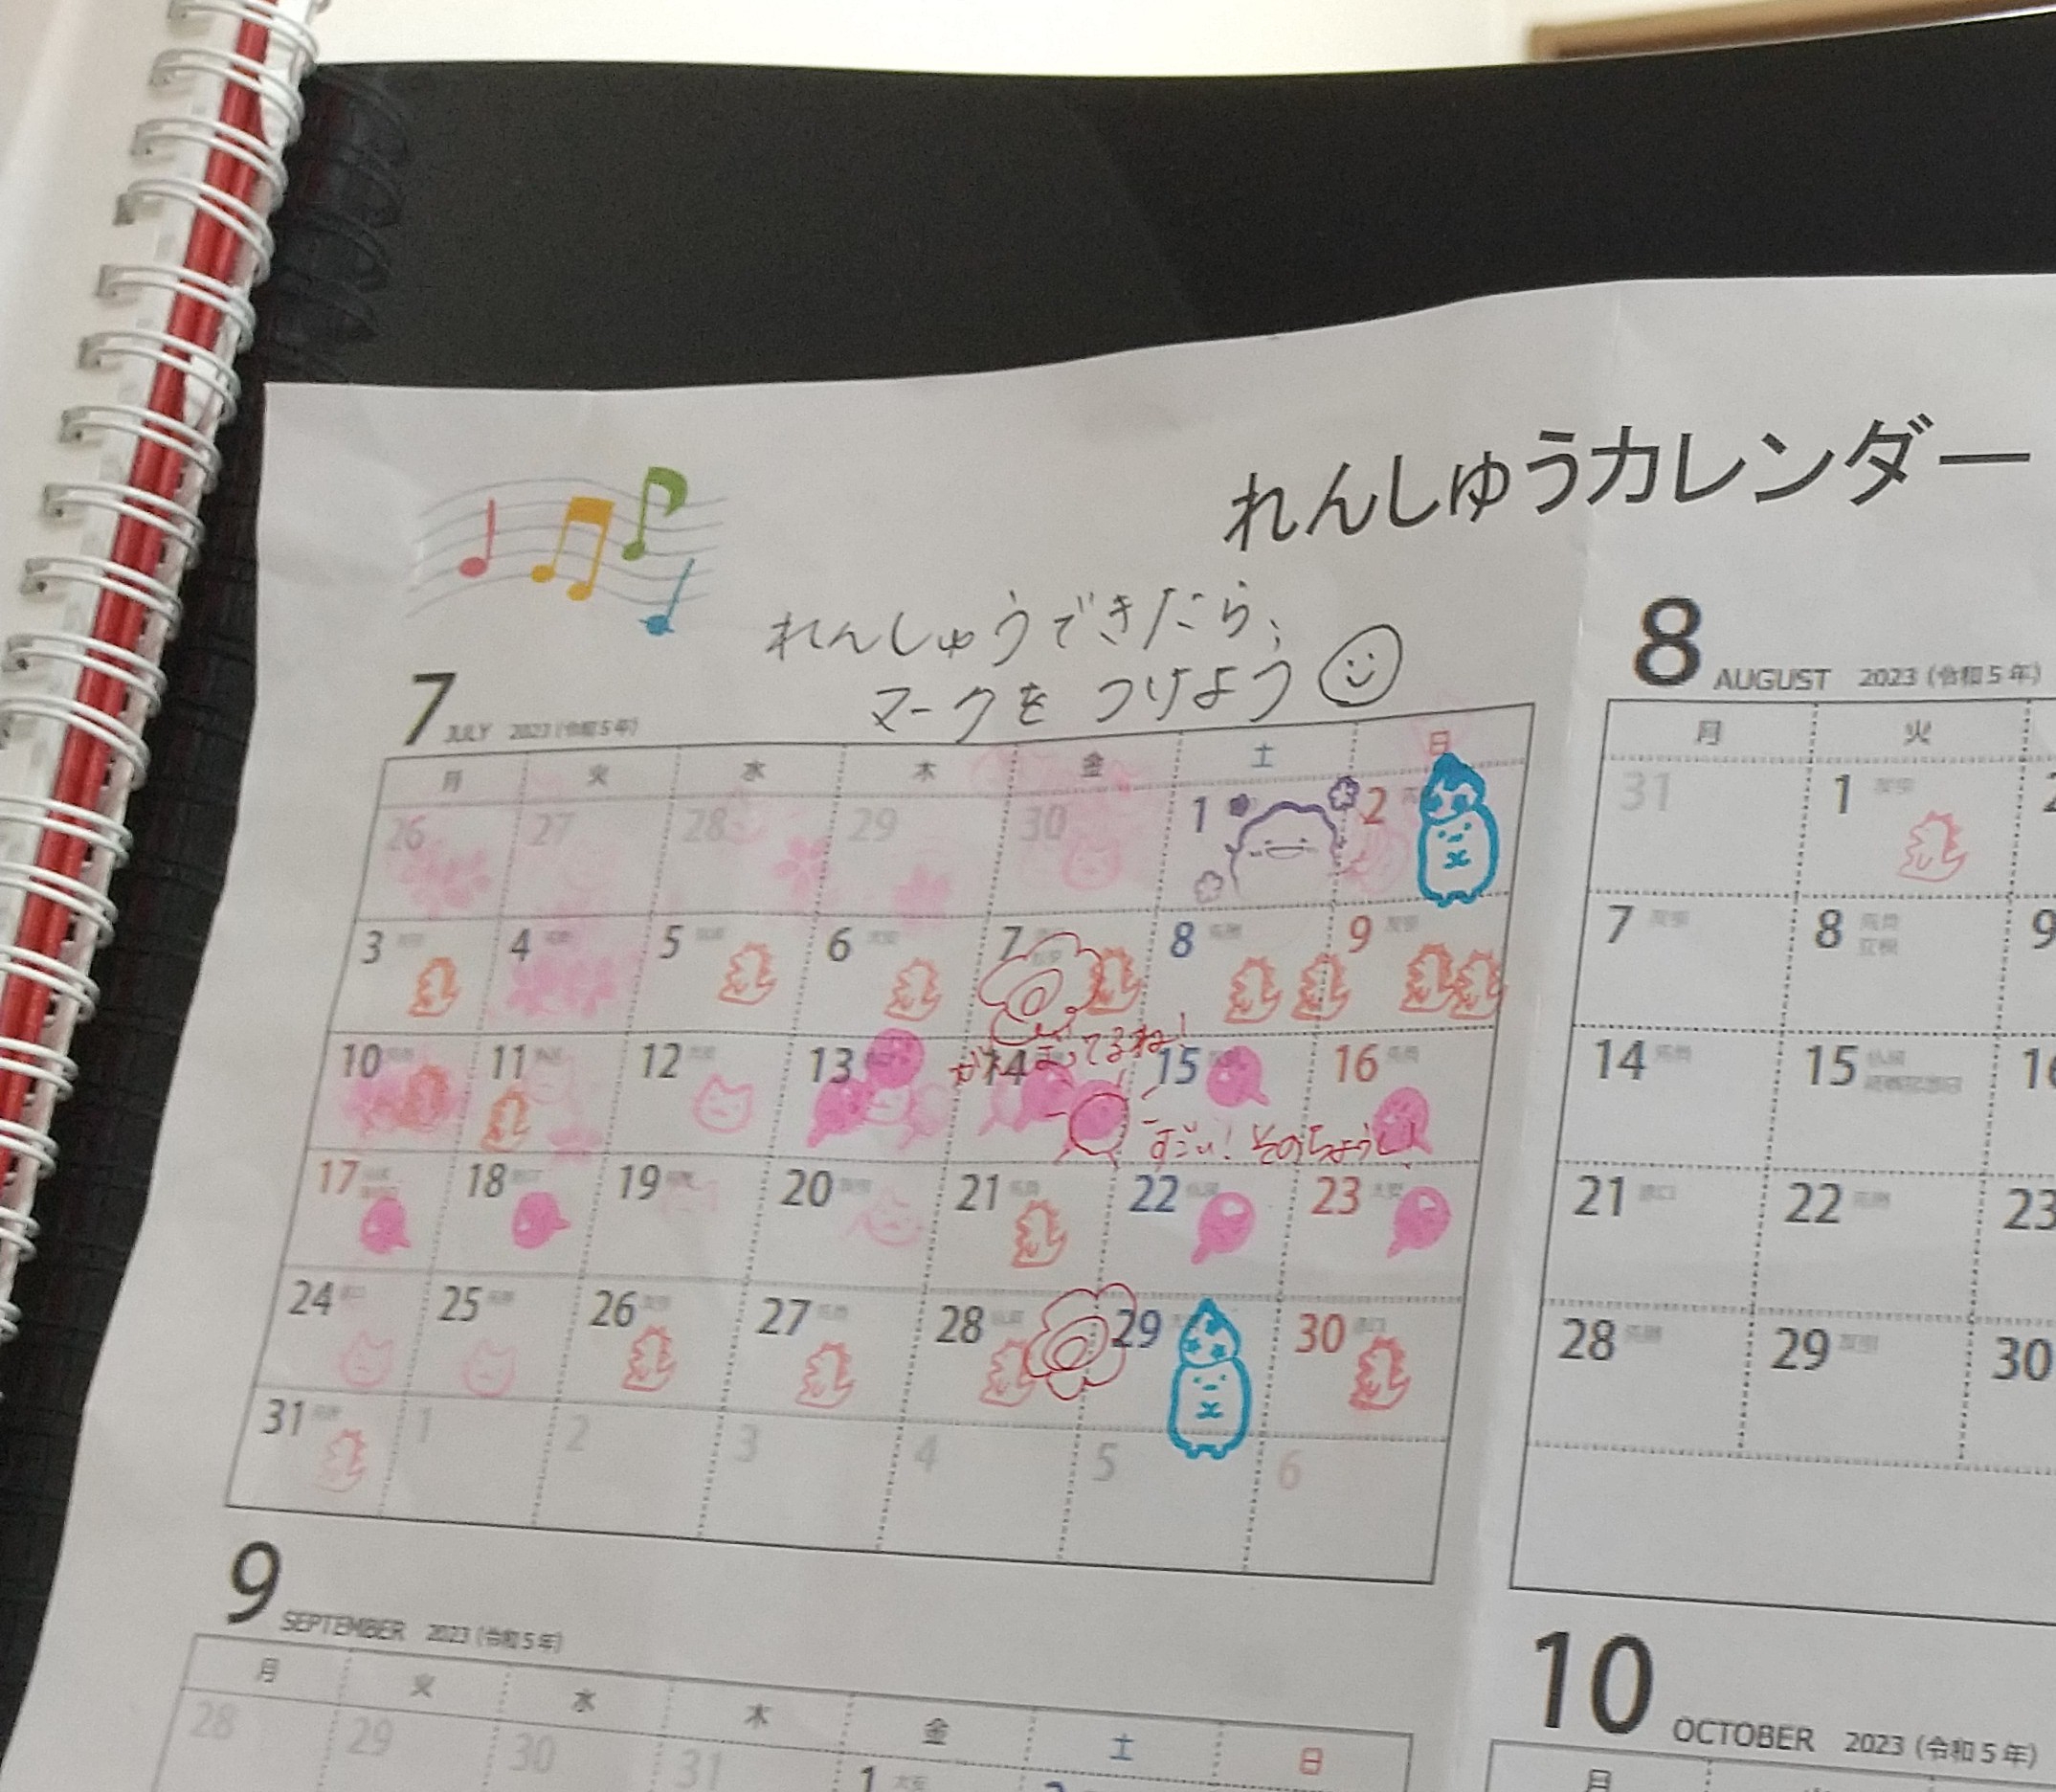 れんしゅうカレンダー
れんしゅうできたら、
マークをつけよう
7 JULY 2023 (令和5年)
月 火 水 木 金 土 日
26 27 28 29 30 1 2
3 4 5 6 7 8 9
がんばってるね!
10 11 12 13 14 15 16
すごい! そのちょうし!
17 18 19 20 21 22 23
24 25 26 27 28 29 30
31 1 2 3 4 5 6
8 AUGUST 2023 (令和5年)
月 火
31 1 2
7 8 9
14 15 16
21 22 23
28 29 30
9 SEPTEMBER 2023 (令和5年)
月 火 水 木 金 土 日
28 29 30 31 1 大安
10 OCTOBER 2023 (令和5年)
月